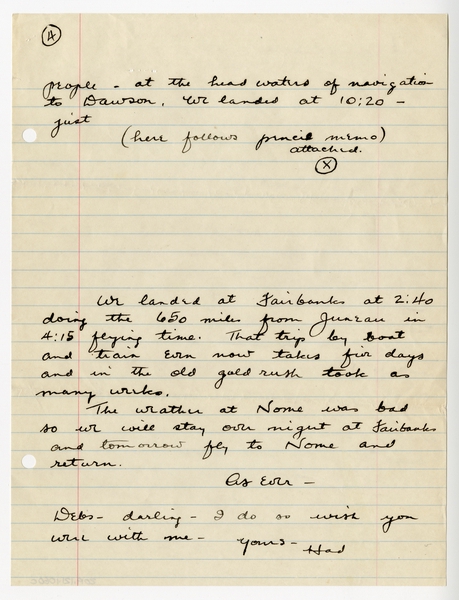 4
people - at the head waters of navigation
to Dawson. We landed at 10:20 -
just
(here follows pencil memo)
attached.
X
We landed at Fairbanks at 2:40
doing the 650 miles from Juneau in
4:15 flying time. That trip by boat
and train even now takes five days
and in the old gold rush took as
many weeks.
The weather at Nome was bad
so we will stay over night at Fairbanks
and tomorrow fly to Nome and
return.
As Ever -
Debs - darling - I do so wish you
were with me -
Yours -
Had